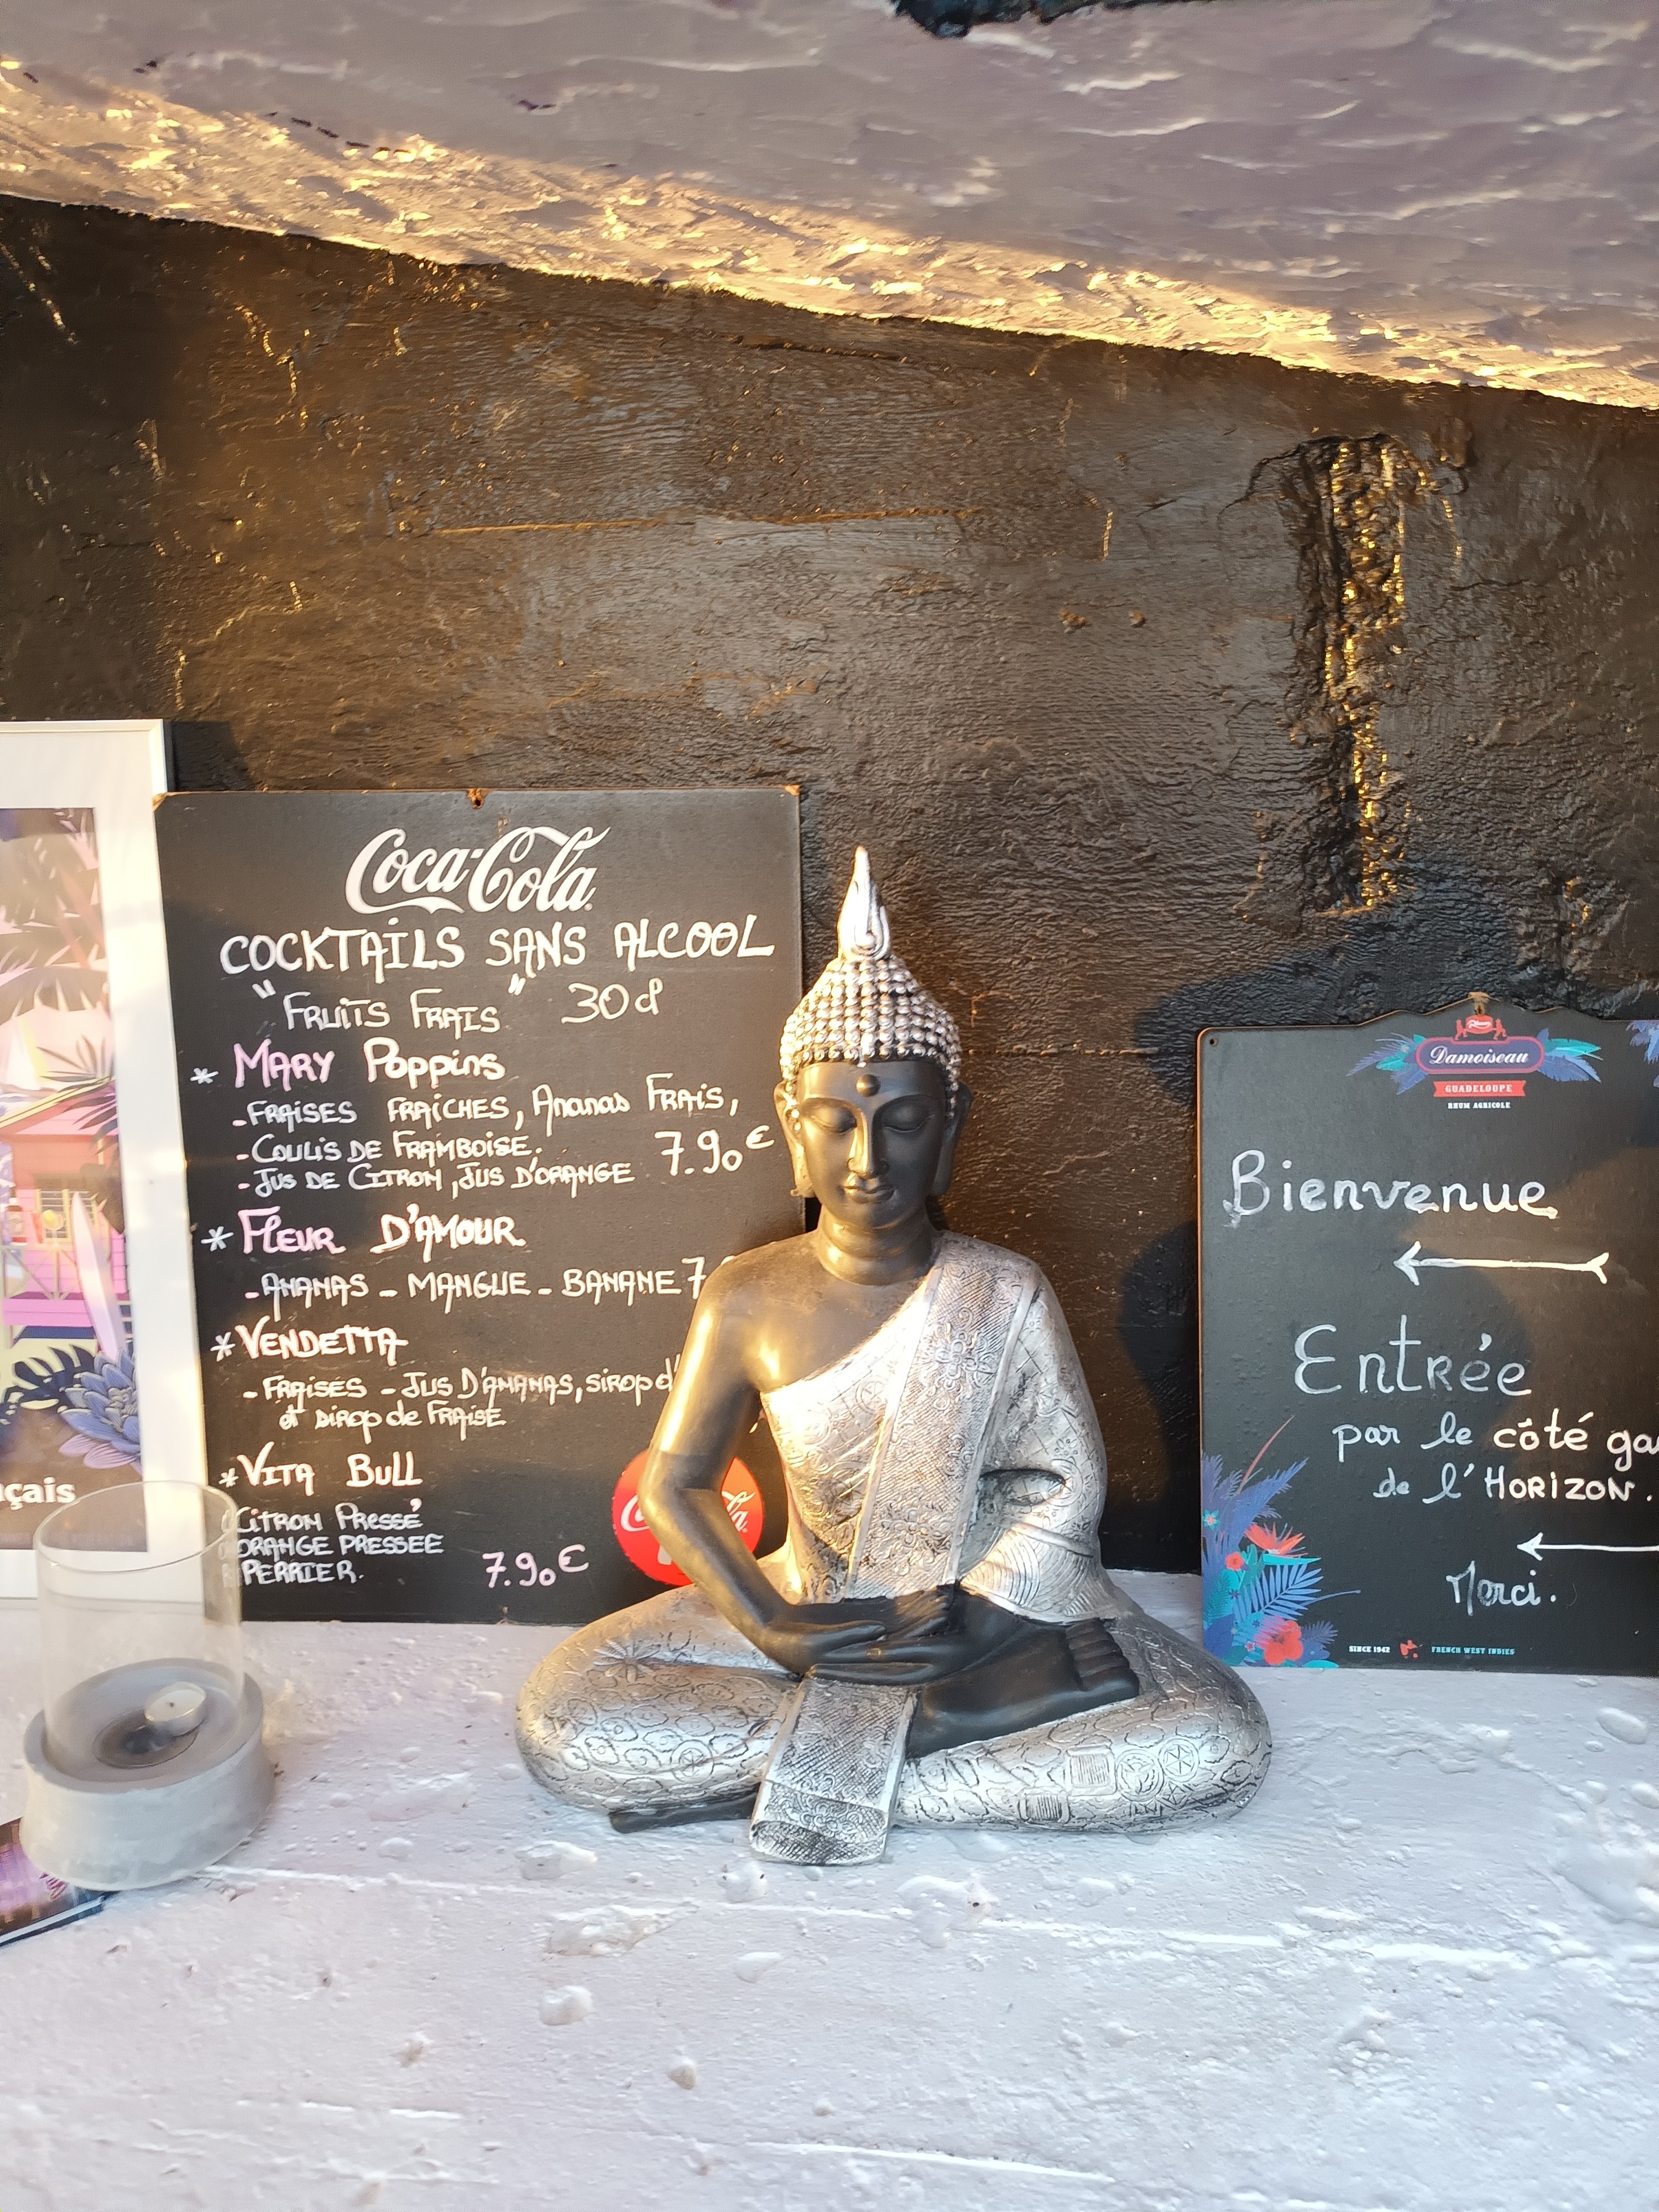 Coca-Cola
COCKTAILS SANS ALCOOL
"FRUITS FRAIS" 30cl
* MARY Poppins
- FRAISES FRAÎCHES, Ananas FRAIS,
- COULIS DE FRAMBOISE.
- JUS DE CITRON, JUS D'ORANGE 7.90€
* FLEUR D'AMOUR
- ANANAS - MANGUE - BANANE 7
* VENDETTA
- FRAISES - JUS D'ANANAS, sirop d'
et sirop de FRAISE
* VITA BULL
CITRON PRESSÉ
ORANGE PRESSEE
PERRIER.
7.90€
çais
Damoiseau
GUADELOUPE
RHUM AGRICOLE
Bienvenue
Entrée
par le côté ga
de l'HORIZON.
Merci.
SINCE 1942 FRENCH WEST INDIES